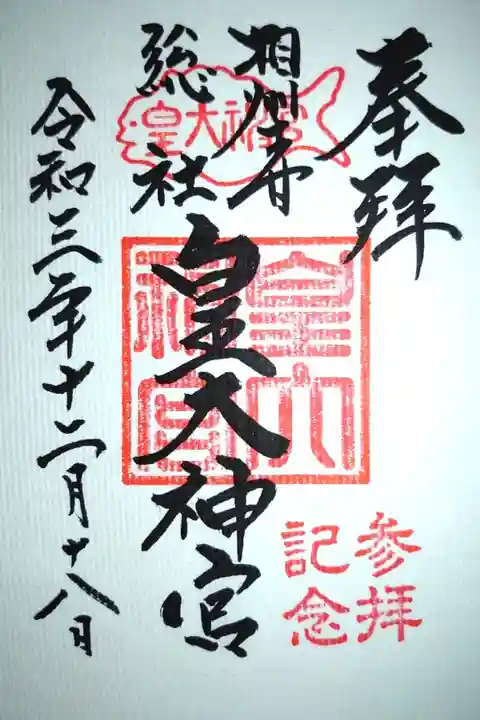 奉拝
相州寒川
総社
皇大神宮
皇大神宮
皇大神宮
参拝
記念
令和三年十二月十八日